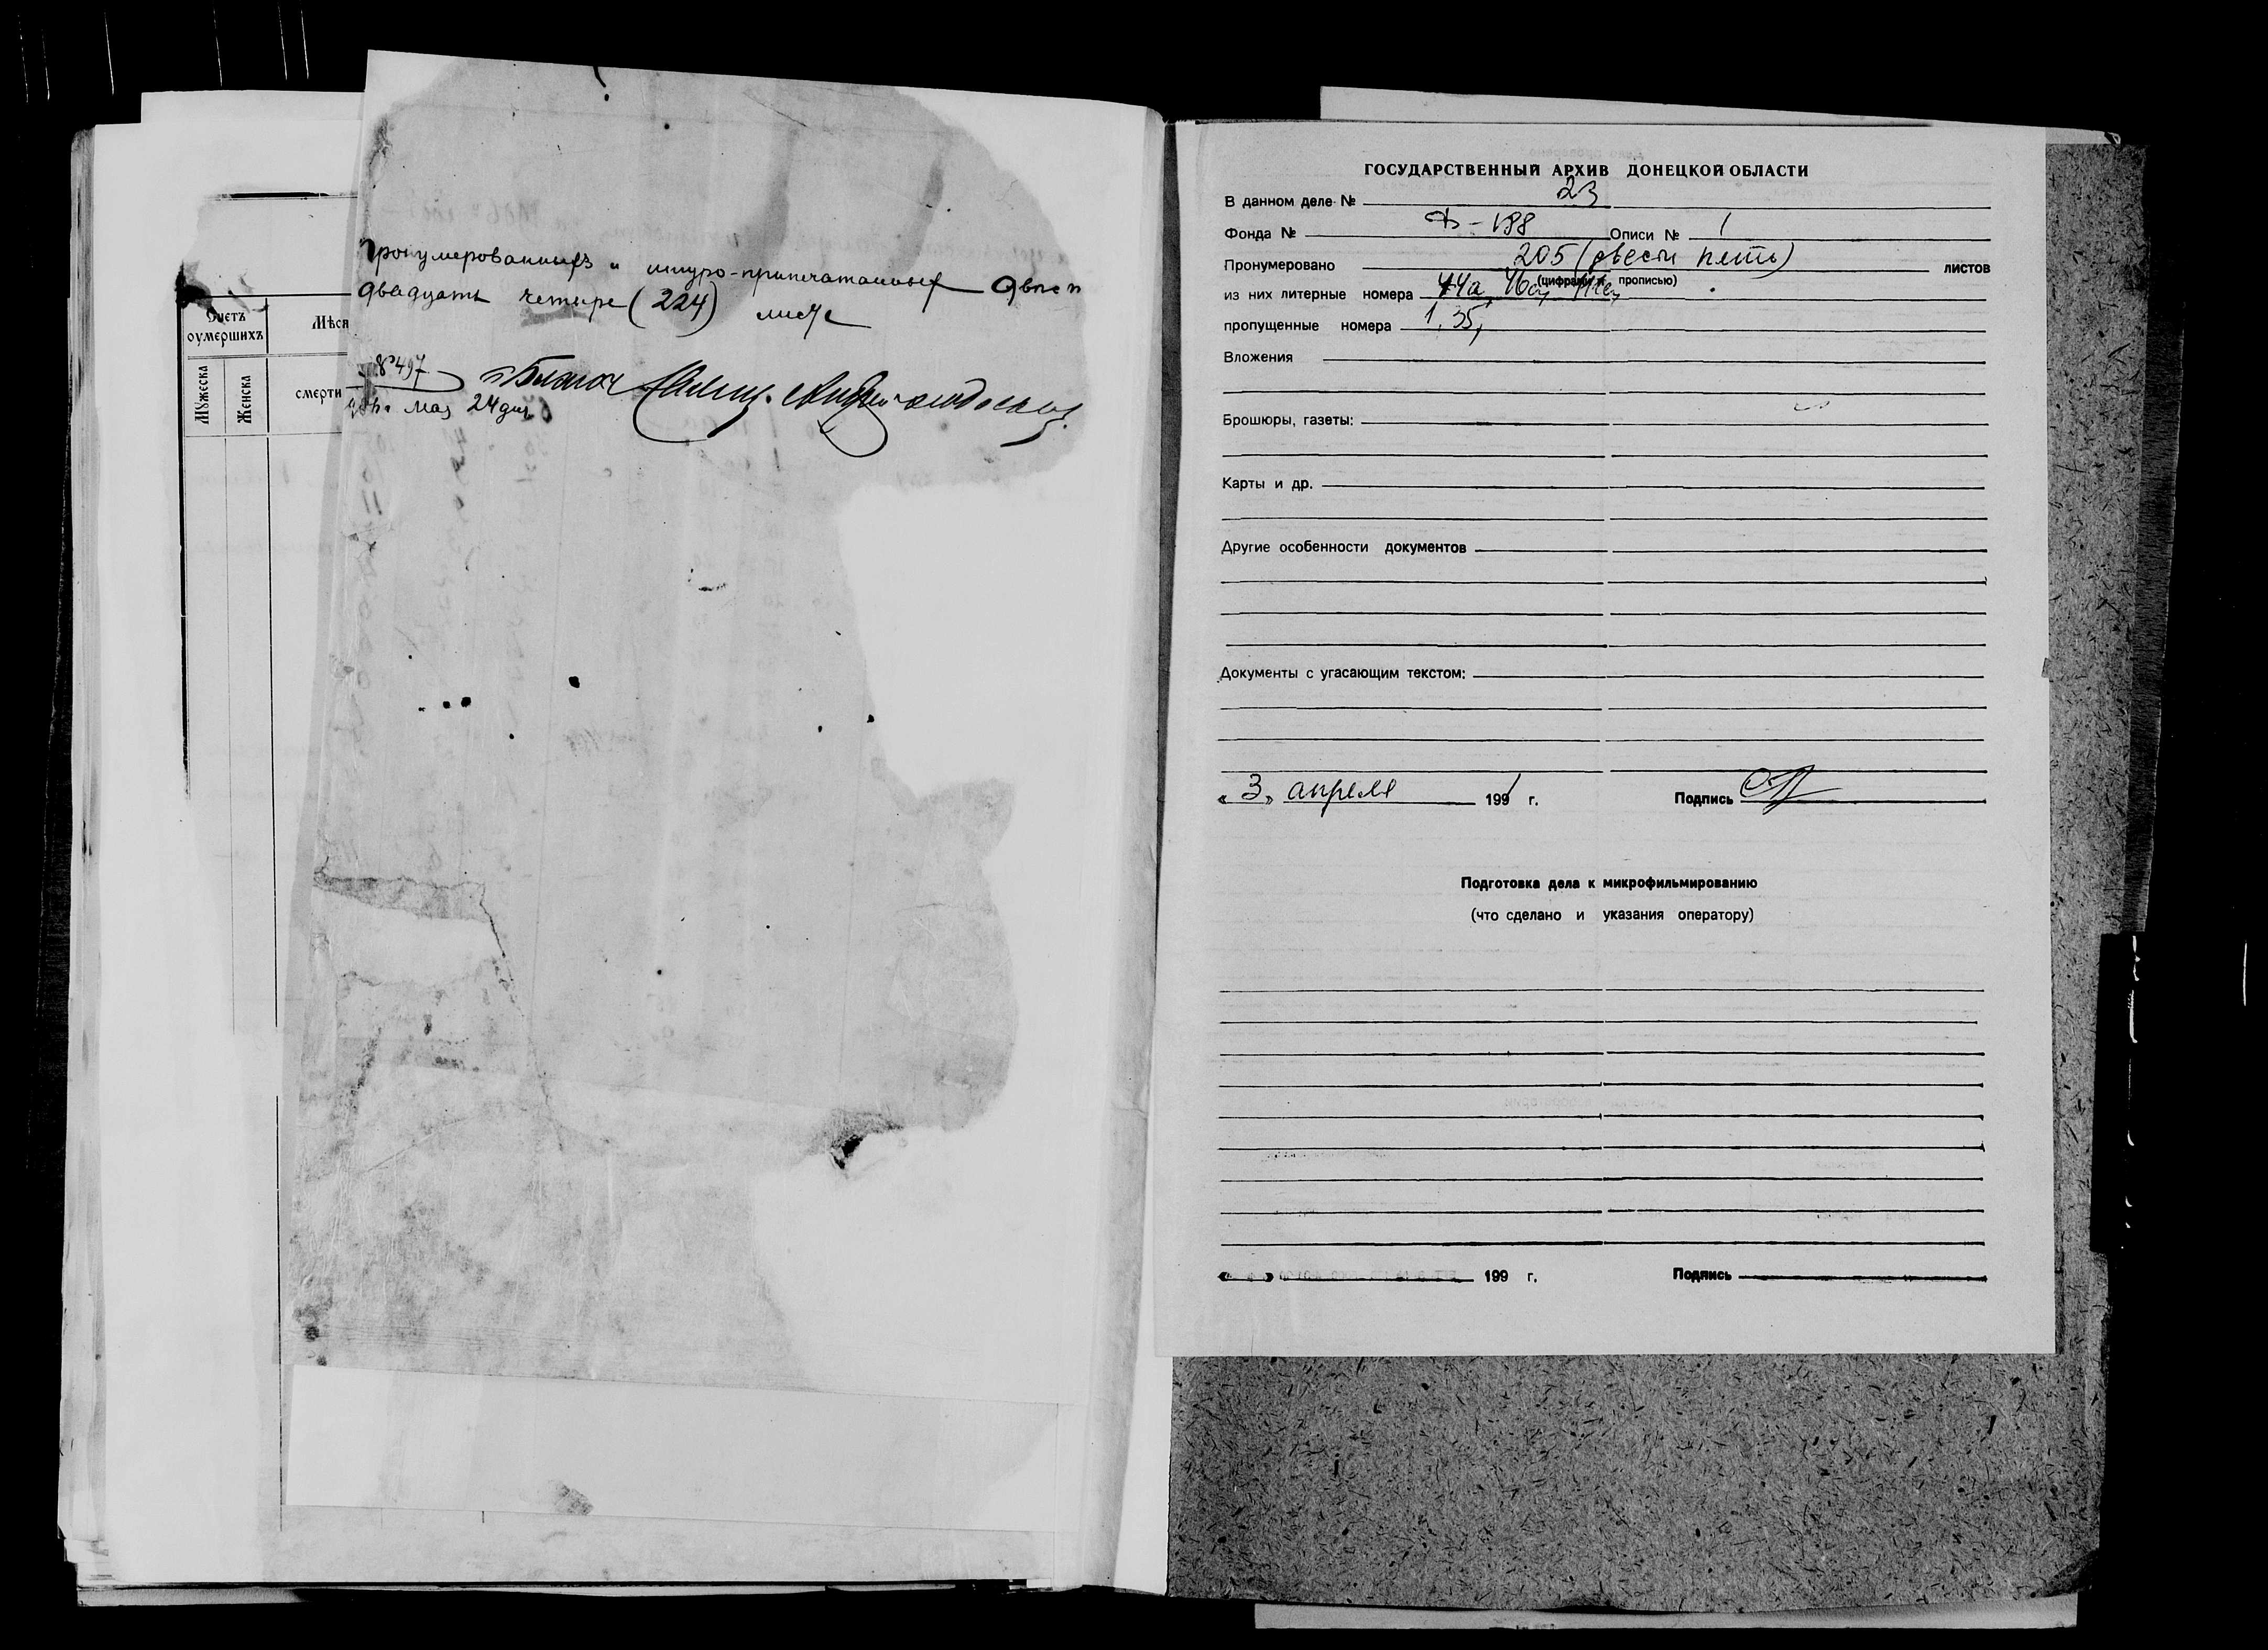 Счетъ
оумершихъ
Мѣся
Мужеска
Женска
смерти
Пронумерованныхъ и шнуро-припечатанных двѣсти
двадцать четыре (224) листа
№ 497
Мая 24 дня
ГОСУДАРСТВЕННЫЙ АРХИВ ДОНЕЦКОЙ ОБЛАСТИ
В данном деле № 23
Фонда № Ф-198 Описи № 1
Пронумеровано 205 (двести пять) листов
(цифрами и прописью)
из них литерные номера 44а, 46а,
пропущенные номера 1, 35,
Вложения
Брошюры, газеты:
Карты и др.
Другие особенности документов
Документы с угасающим текстом:
«3» апреля 1991 г. Подпись
Подготовка дела к микрофильмированию
(что сделано и указания оператору)
« » 199 г. Подпись